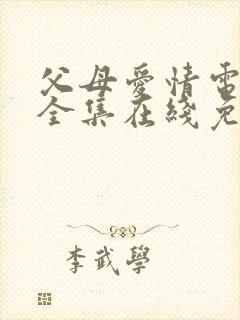 父母愛情電
全集在綫免
李武學